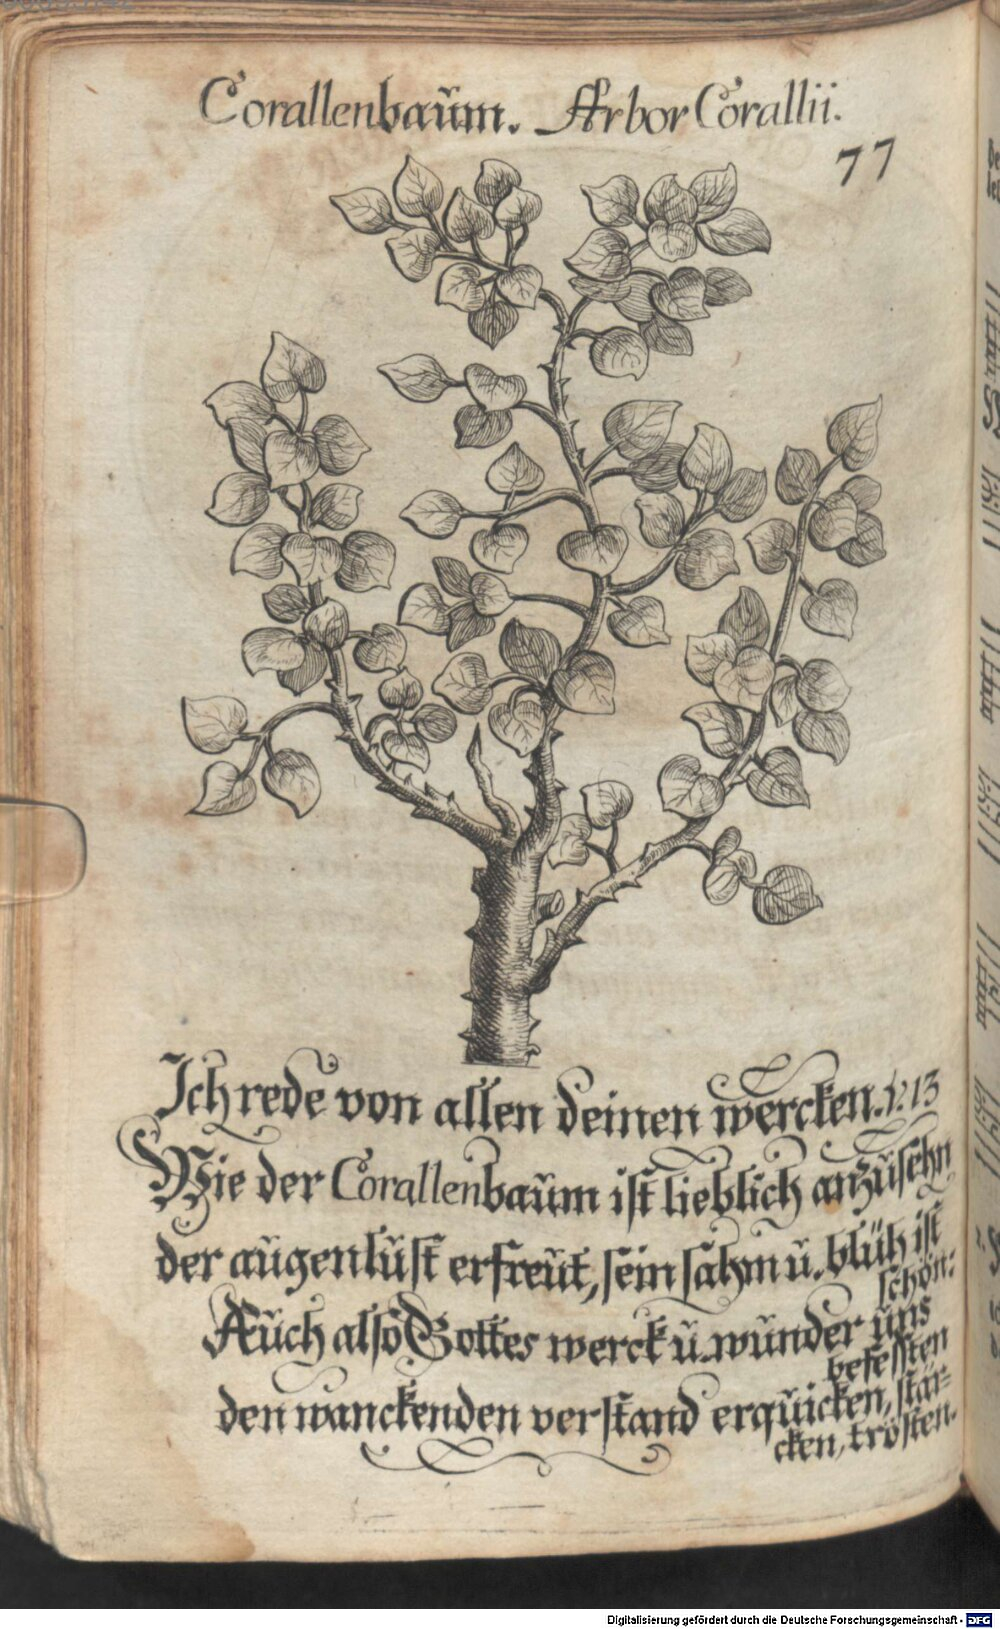 Corallenbaum. Arbor Corallii.
77
Ich rede von allen deinen wercken. v. 13
Wie der Corallenbaum ist lieblich anzusehn
der augenlust erfreut, sein sahm u. blüh ist
schön:
Auch also Gottes werck u. wunder uns
befessten
den wanckenden verstand erquicken, stär=
cken, trösten.
Digitalisierung gefördert durch die Deutsche Forschungsgemeinschaft - DFG